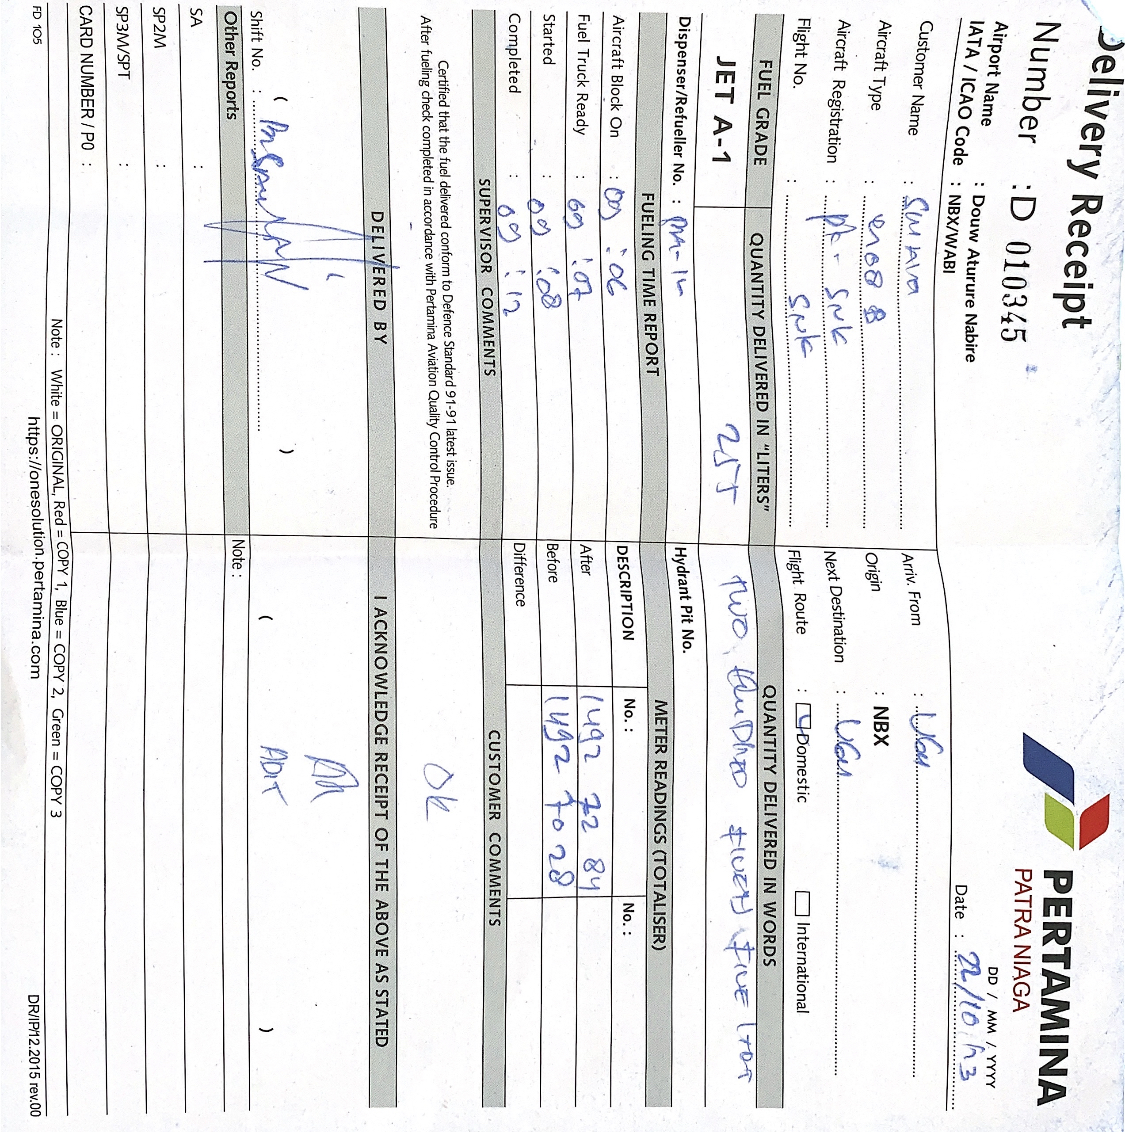 Delivery Receipt
PERTAMINA
PATRA NIAGA
Number : D 010345
DD / MM / YYYY
Airport Name : Douw Aturure Nabire
IATA / ICAO Code : NBX/WABI
Date : 22/10/23
Customer Name :
Arriv. From :
Aircraft Type :
Origin : NBX
Aircraft Registration : PK - SNK
Next Destination :
Flight No. : SNK
Flight Route : Domestic International
FUEL GRADE QUANTITY DELIVERED IN "LITERS" QUANTITY DELIVERED IN WORDS
JET A-1 255 TWO HUNDRED FIVETY FIVE
Dispenser/Refueller No. :
Hydrant Pit No.
FUELING TIME REPORT METER READINGS (TOTALISER)
Aircraft Block On : 09 : 06
DESCRIPTION No. : No. :
Fuel Truck Ready : 09 : 07
After 1492 72 84
Started : 09 : 08
Before 1492 70 28
Completed : 09 : 12
Difference
SUPERVISOR COMMENTS CUSTOMER COMMENTS
Certified that the fuel delivered conform to Defence Standard 91-91 latest issue.
After fueling check completed in accordance with Pertamina Aviation Quality Control Procedure
OK
DELIVERED BY I ACKNOWLEDGE RECEIPT OF THE ABOVE AS STATED
( ) ( ADIT )
Shift No. :
Other Reports Note :
SA :
SP2M :
SP3M/SPT :
CARD NUMBER / PO :
Note : White = ORIGINAL, Red = COPY 1, Blue = COPY 2, Green = COPY 3
FD 105 https://onesolution.pertamina.com DR/IP/12.2015 rev.00